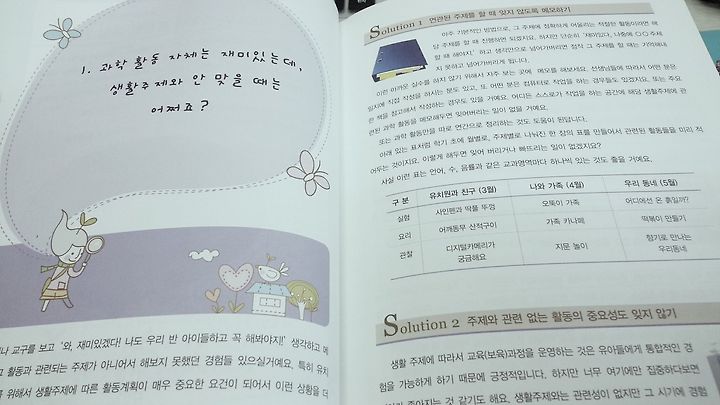 1. 과학 활동 자체는 재미있는데,
생활주제와 안 맞을 때는
어쩌죠?
나 교구를 보고 '와, 재미있겠다! 나도 우리 반 아이들하고 꼭 해봐야지!' 생각하고 메
활동과 관련되는 주제가 아니어서 해보지 못했던 경험들 있으실거예요. 특히 유치
위해서 생활주제에 따른 활동계획이 매우 중요한 요건이 되어서 이런 상황을 더
Solution 1 연관된 주제를 할 때 잊지 않도록 메모하기
아주 기본적인 방법으로, 그 주제에 정확하게 어울리는 적절한 활동이라면 해
당 주제를 할 때 진행하면 되겠지요. 하지만 단순히 '재미있다, 나중에 ○○주제
할 때 해야지.' 하고 생각만으로 넘어가버리면 정작 그 주제를 할 때는 기억해내
지 못하고 넘어가버리게 됩니다.
이런 아까운 실수를 하지 않기 위해서 자주 보는 곳에 메모를 해보세요. 선생님들에 따라서 어떤 분은
일지에 직접 작성을 하시는 분도 있고, 또 어떤 분은 컴퓨터로 작업을 하는 경우들도 있겠지요. 또는 주요
한 책을 참고해서 작성하는 경우도 있을 거예요. 어디든 스스로가 작업을 하는 공간에 해당 생활주제에 관
련된 과학 활동을 메모해두면 잊어버리는 일이 없을 거예요.
또는 과학 활동만을 따로 연간으로 정리하는 것도 도움이 된답니다.
아래 있는 표처럼 학기 초에 월별로, 주제별로 나눠진 한 장의 표를 만들어서 관련된 활동들을 미리 적
어두는 것이지요. 이렇게 해두면 잊어 버리거나 빠뜨리는 일이 없겠지요?
사실 이런 표는 언어, 수, 음률과 같은 교과영역마다 하나씩 있는 것도 좋을 거예요.
구 분 유치원과 친구 (3월) 나와 가족 (4월) 우리 동네 (5월)
실험 사인펜과 딱풀 뚜껑 오뚝이 가족 어디에선 온 흙일까?
요리 어깨동무 산적구이 가족 카나페 떡볶이 만들기
관찰 디지털카메라가 궁금해요 지문 놀이 향기로 만나는 우리동네
Solution 2 주제와 관련 없는 활동의 중요성도 잊지 않기
생활 주제에 따라서 교육(보육)과정을 운영하는 것은 유아들에게 통합적인 경
험을 가능하게 하기 때문에 긍정적입니다. 하지만 너무 여기에만 집중하다보면
좁아지는 것 같기도 해요. 생활주제와는 관련성이 없지만 그 시기에 경험